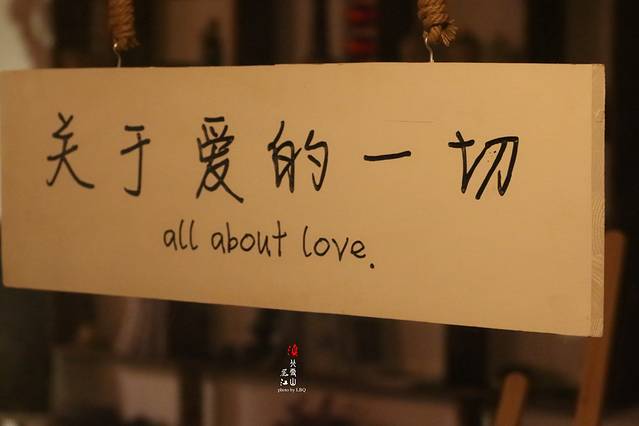 关于爱的一切
all about love.
photo by LBQ